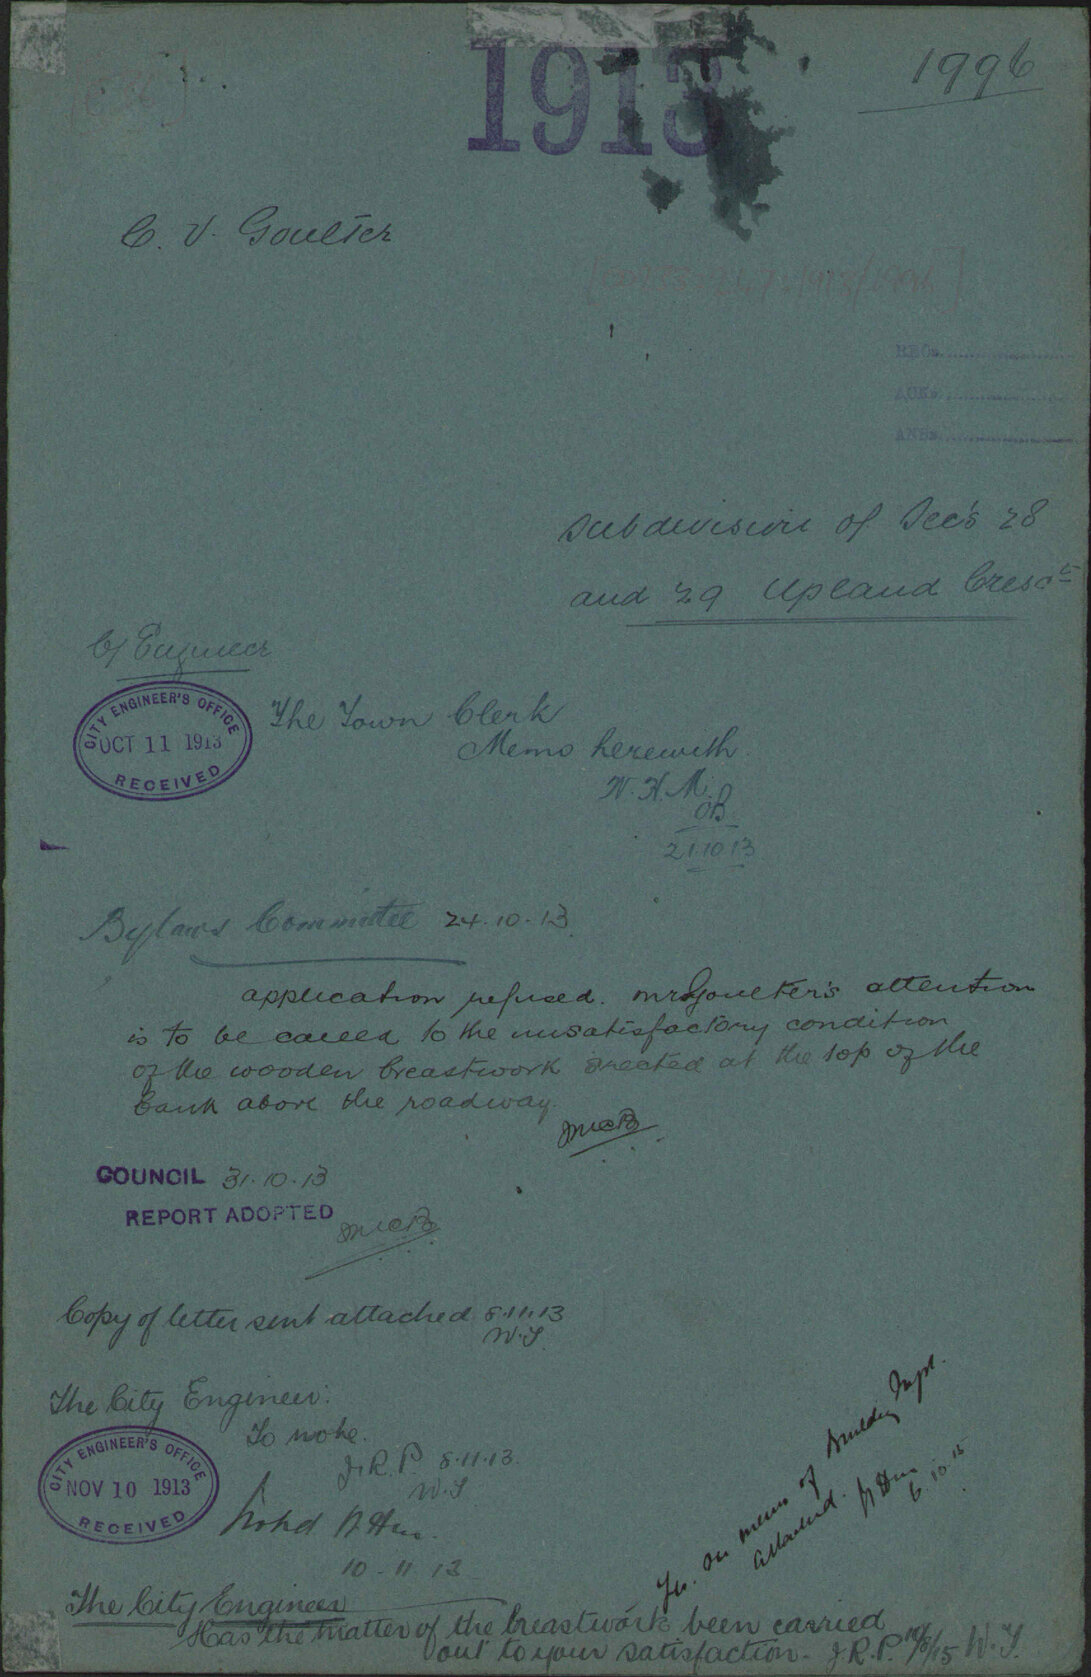 1913
1996
C. V. Goulter
RECD.
ACKD.
ANSD.
Subdivision of Sec's 28
and 29 Upland Cresct
Cy Engineer
CITY ENGINEER'S OFFICE
OCT 11 1913
RECEIVED
The Town Clerk
Memo herewith.
W. H. M.
21.10.13
Bylaws Committee 24.10.13
application refused. Mr Goulter's attention
is to be called to the unsatisfactory condition
of the wooden breastwork erected at the top of the
bank above the roadway.
COUNCIL 31.10.13
REPORT ADOPTED
Copy of letter sent attached 8.11.13
W.T.
The City Engineer:
To note.
J.R.P. 8.11.13.
W.T
CITY ENGINEER'S OFFICE
NOV 10 1913
RECEIVED
Noted
10-11 13
memo of Building Inspr.
attached.
6.10.15
The City Engineer
Has the matter of the breastwork been carried
out to your satisfaction. J.R.P. W.T.